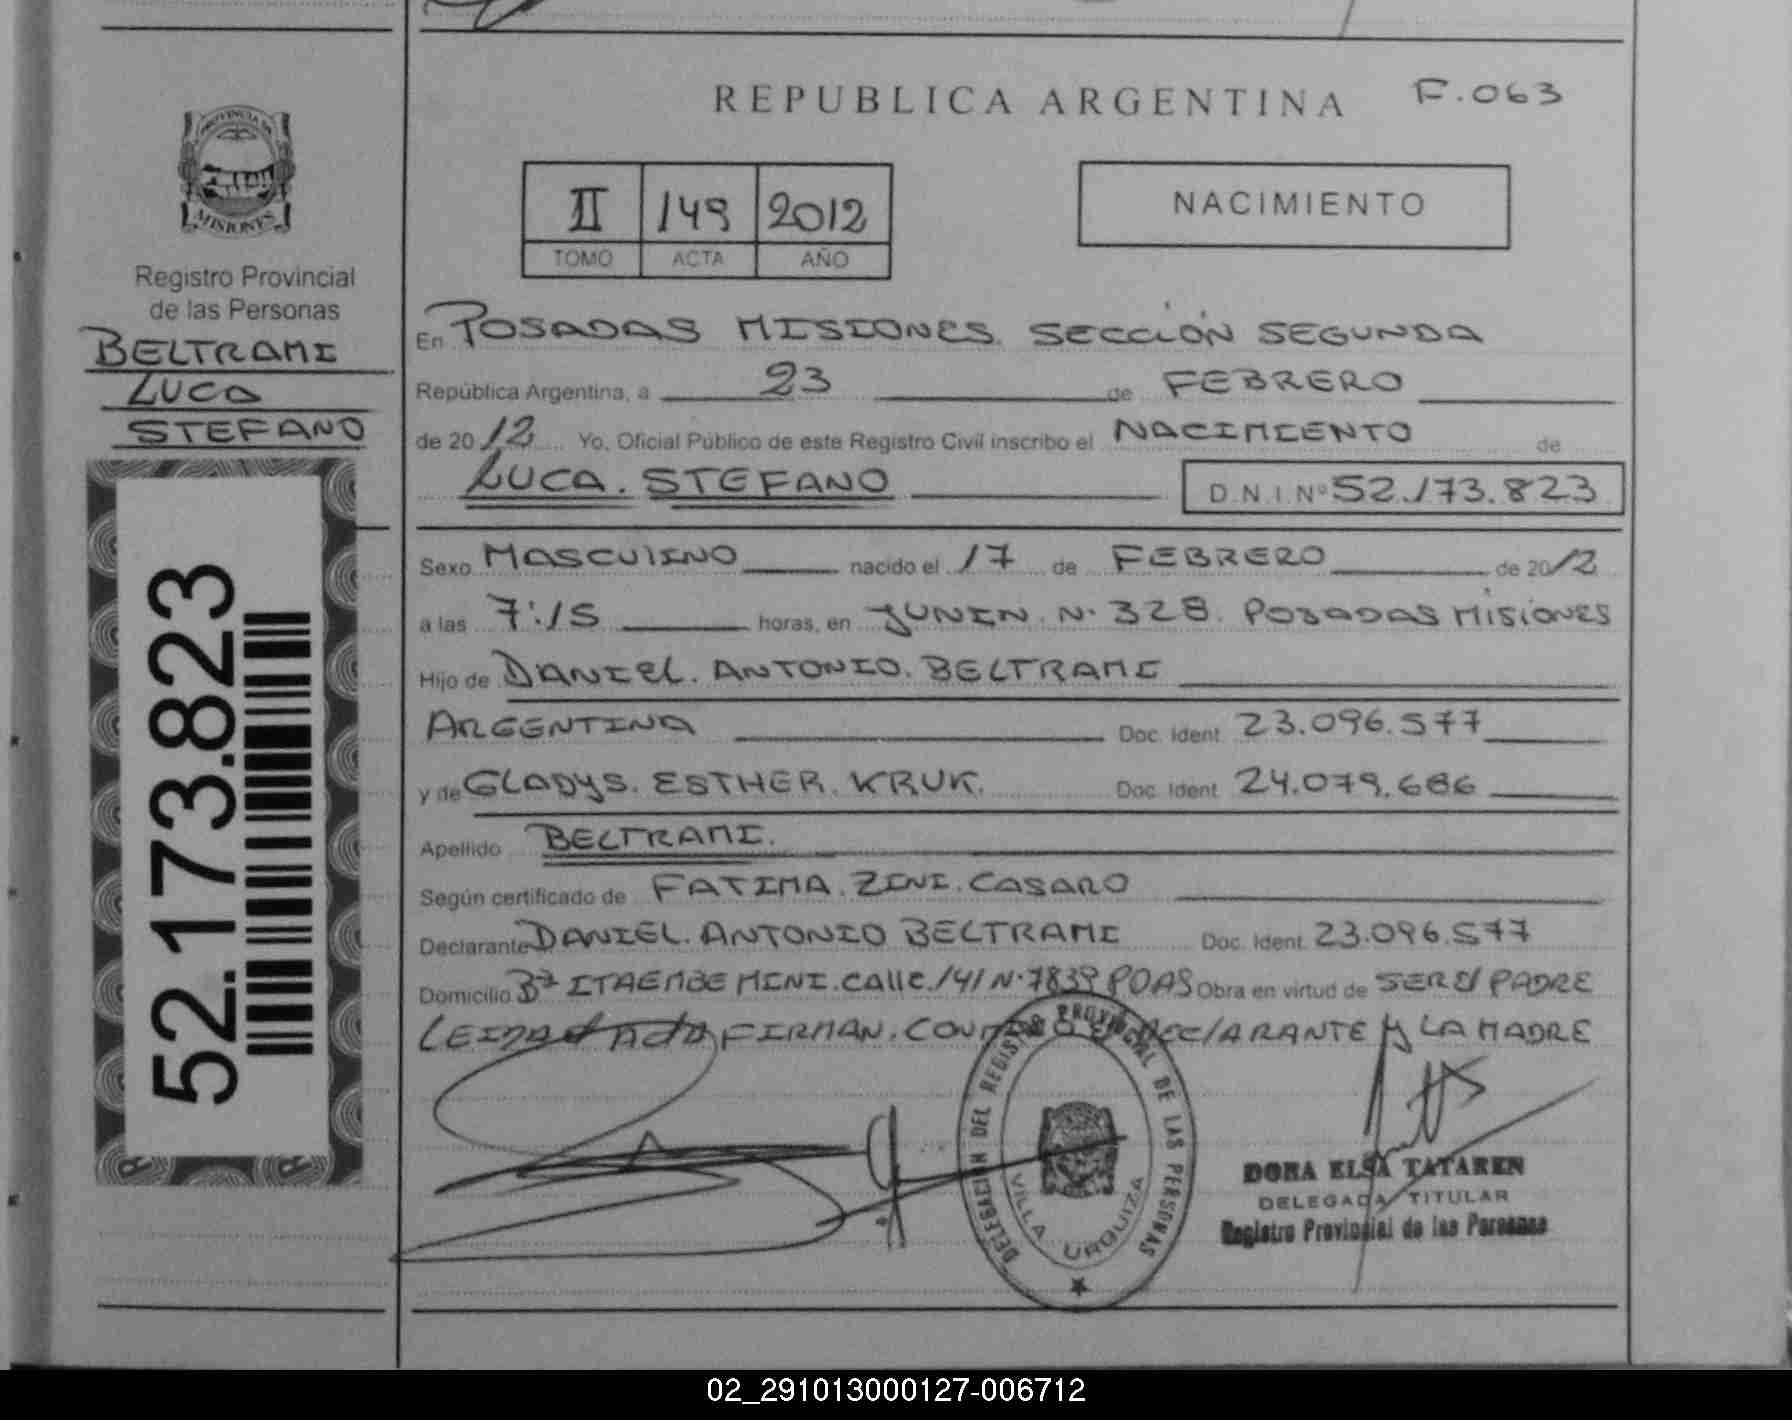 REPUBLICA ARGENTINA F.063
PROVINCIA DE
MISIONES
Registro Provincial
de las Personas
BELTRAMI
LUCA
STEFANO
52.173.823
II 149 2012
TOMO ACTA AÑO
NACIMIENTO
En POSADAS MISIONES SECCIÓN SEGUNDA
República Argentina, a 23 de FEBRERO
de 2012 Yo, Oficial Público de este Registro Civil inscribo el NACIMIENTO de
LUCA. STEFANO D.N.I. Nº 52.173.823
Sexo MASCULINO nacido el 17 de FEBRERO de 2012
a las 7:15 horas, en JUNIN N. 328. POSADAS MISIONES
Hijo de DANIEL. ANTONIO. BELTRAMI
ARGENTINA Doc. Ident. 23.096.577
y de GLADYS. ESTHER. KRUK. Doc. Ident. 24.079.686
Apellido BELTRAMI.
Según certificado de FATIMA. ZINI. CASARO
Declarante DANIEL. ANTONIO BELTRAMI Doc. Ident. 23.096.577
Domicilio Bº ITAEMBE MINI. calle. 141 N. 7839 POAS Obra en virtud de SER el PADRE
LEIDA el Acta FIRMAN. CONMIGO EL DECLARANTE y LA MADRE
DELEGACION DEL REGISTRO PROVINCIAL DE LAS PERSONAS
VILLA URQUIZA
DORA ELSA TATAREN
DELEGADA TITULAR
Registro Provincial de las Personas
02_291013000127-006712